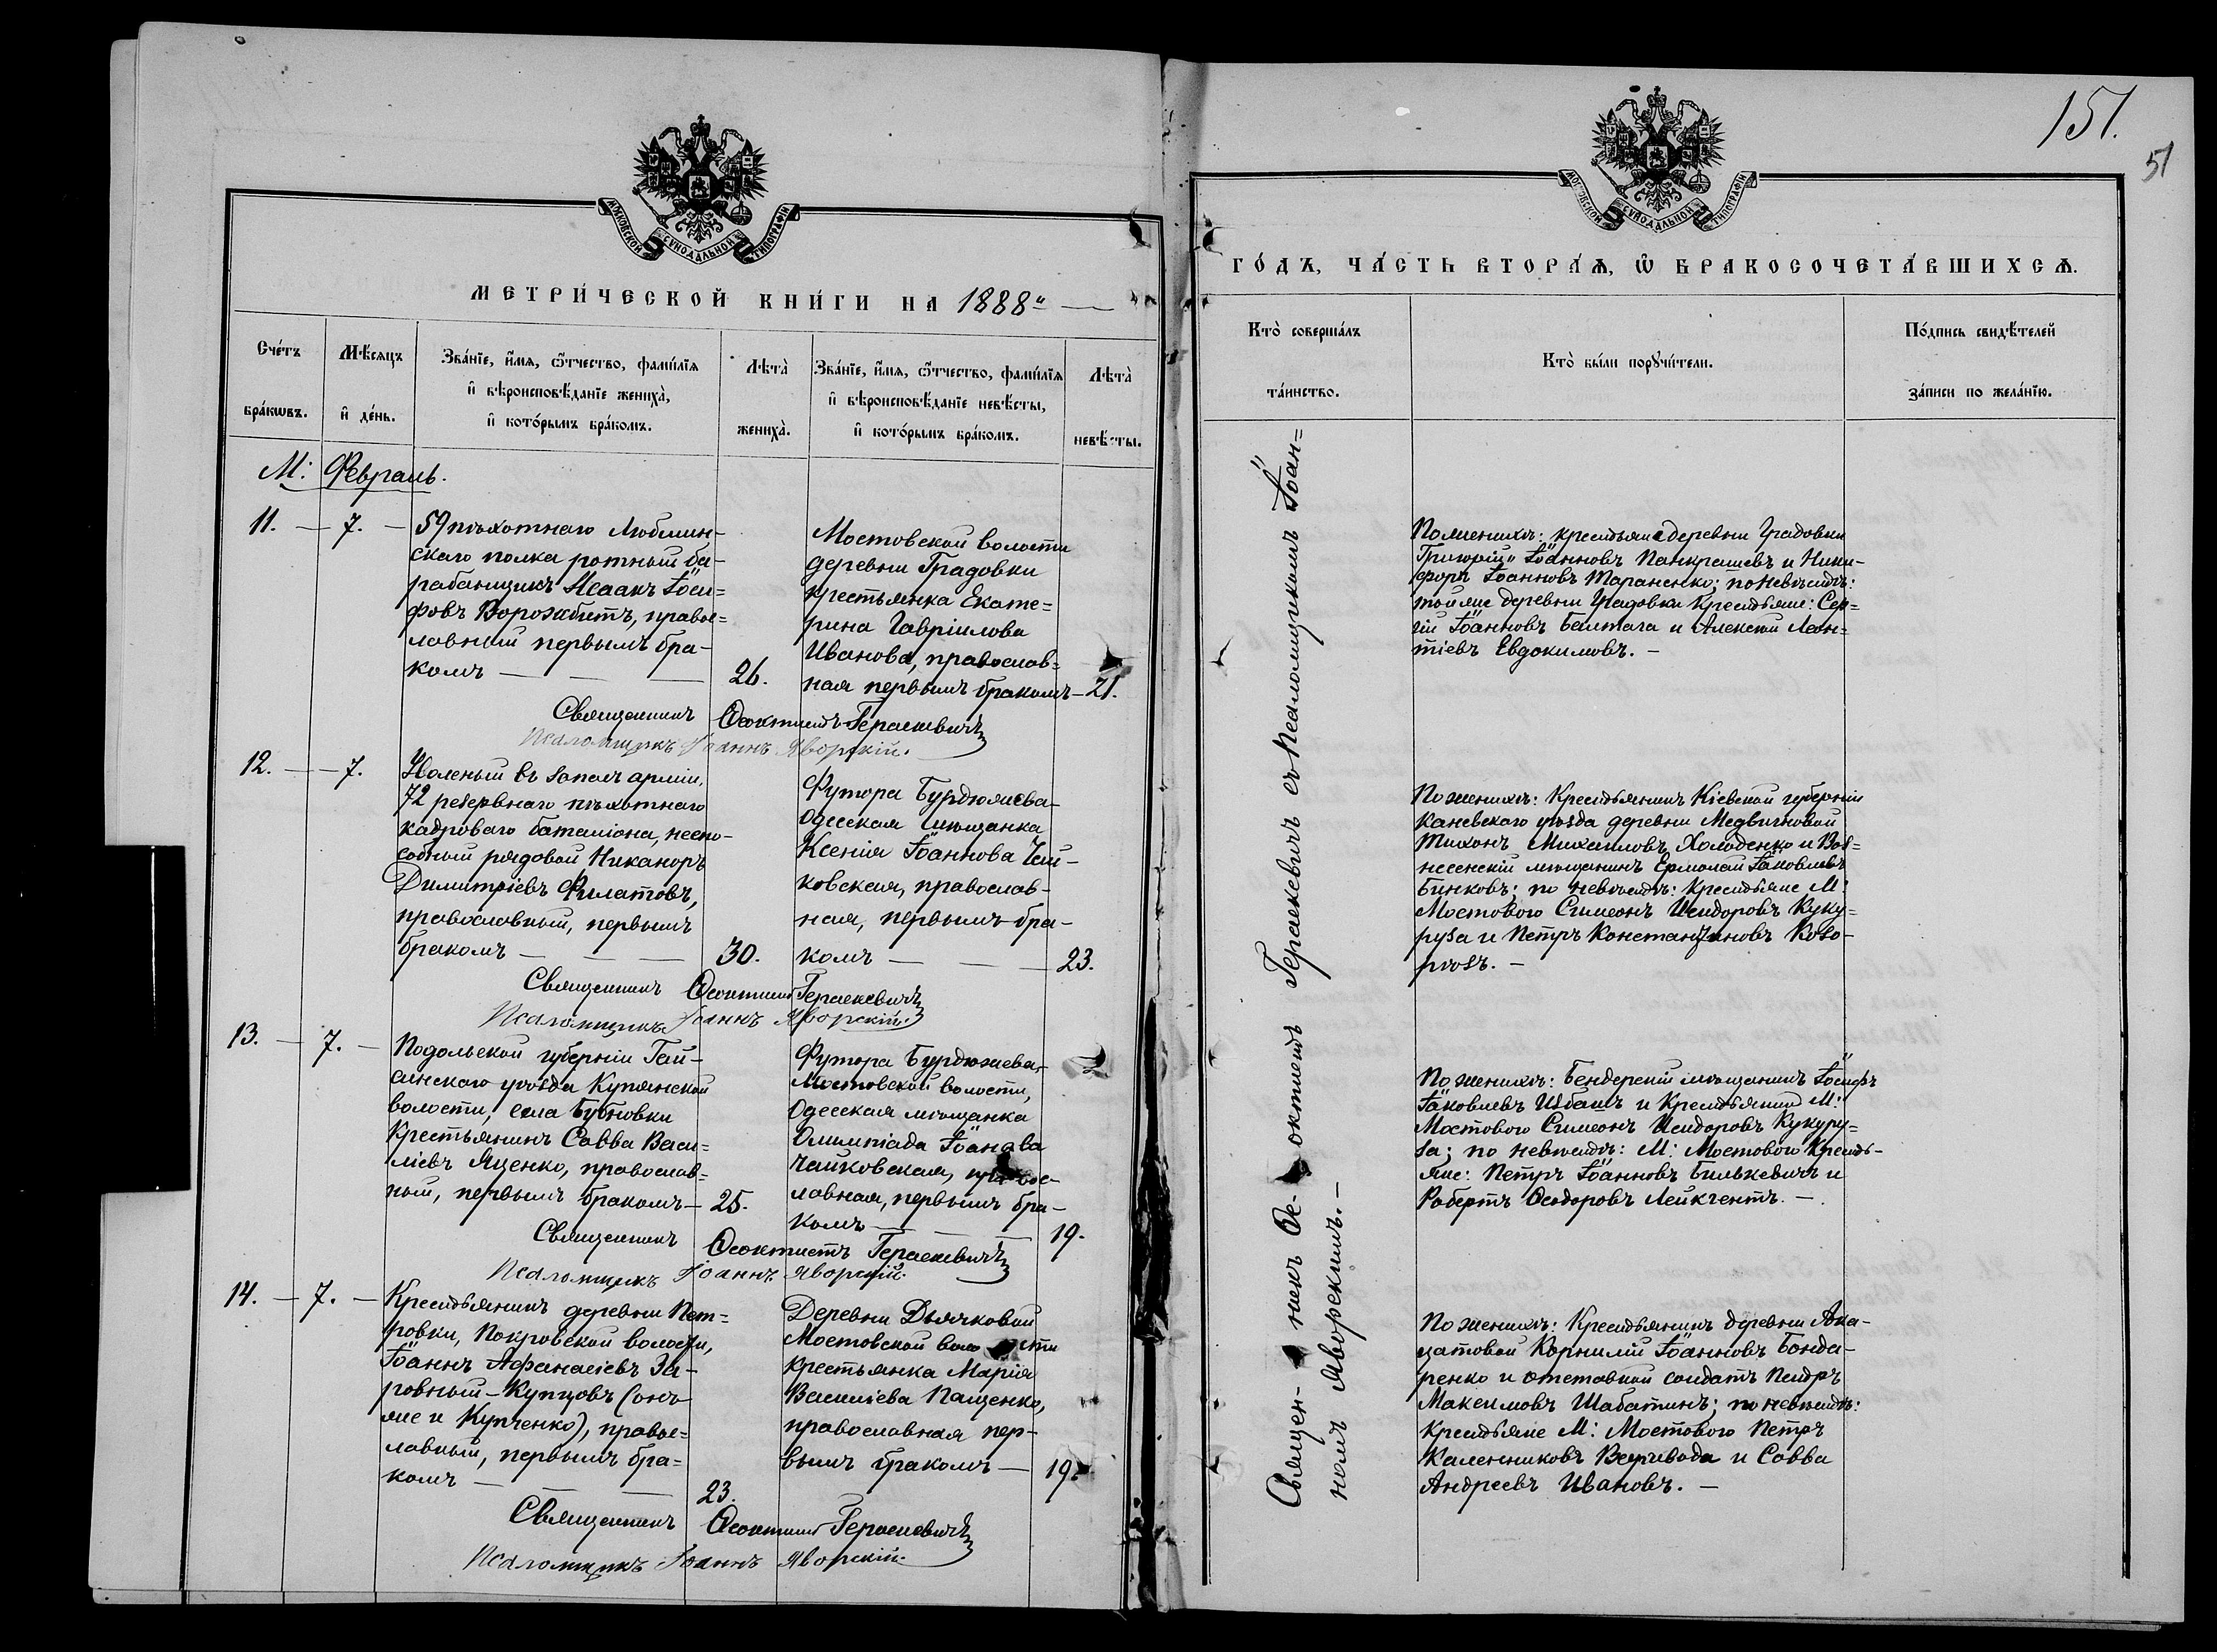 МОСКОВСКОЙ СѴНОДАЛЬНОЙ ТИПОГРАФІИ
МЕТРИ́ЧЕСКОЙ КНИ́ГИ НА 1888й
Сче́тъ бра́кѡвъ.
Мѣ́сяцъ и҆ де́нь.
Зва́нїе, и҆́мѧ, ѻ҆́тчество, фами́лїѧ
и҆ вѣроисповѣ́данїе жениха̀,
и҆ кото́рымъ бра́комъ.
Лѣта̀ жениха̀.
Зва́нїе, и҆́мѧ, ѻ҆́тчество, фами́лїѧ
и҆ вѣроисповѣ́данїе невѣ́сты,
и҆ кото́рымъ бра́комъ.
Лѣта̀ невѣ́сты.
М: Февраль.
11. — 7. —
59 пѣхотнаго Люблин-
скаго полка ротный ба-
рабанщикъ Исаакъ Іоси=
фовъ Ворожбитъ, правос=
лавный первымъ бра-
комъ — 26.
Мостовской волости
деревни Градовки
крестьянка Екате=
рина Гавріилова
Иванова, православ=
ная первымъ бракомъ — 21.
Священникъ Ѳеоктистъ Гераскевичъ
Псаломщикъ Іоаннъ Яворскій.
12. — 7.
Уволенный въ запасъ арміи,
72 резервнаго пѣхотнаго
кадроваго баталіона, неспо-
собный рядовой Никаноръ
Димитріевъ Филатовъ,
православный, первымъ
бракомъ — 30.
Футора Бурдюжева
Одесская мѣщанка
Ксенія Іоаннова Чай-
ковская, православ-
ная, первымъ бра-
комъ — 23.
Священникъ Ѳеоктистъ Гераскевичъ
Псаломщикъ Іоаннъ Яворскій.
13. — 7. —
Подольской губерніи Гай-
синскаго уѣзда Кунянской
волости, села Бубновки
Крестьянинъ Савва Васи=
ліевъ Яценко, православ=
ный, первымъ бракомъ — 25.
Футора Бурдюжева,
Мостовской волости,
Одесская мѣщанка
Олимпіада Іоаннова
Чайковская, правос-
лавная, первымъ бра-
комъ — 19.
Священникъ Ѳеоктистъ Гераскевичъ
Псаломщикъ Іоаннъ Яворскій.
14. — 7. —
Крестьянинъ деревни Пет=
ровки, Покровской волости,
Іоаннъ Афанасіевъ За-
ровный-Купцовъ (онъ
же и Купченко), правос=
лавный, первымъ бра=
комъ — 23.
Деревни Дьячковой
Мостовской волости
крестьянка Марія
Василіева Пащенко,
православная пер-
вымъ бракомъ — 19.
Священникъ Ѳеоктистъ Гераскевичъ
Псаломщикъ Іоаннъ Яворскій.
151.
51
МОСКОВСКОЙ СѴНОДАЛЬНОЙ ТИПОГРАФІИ
ГО́ДЪ, ЧА́СТЬ ВТОРА́Ѧ, Ѡ҆ БРАКОСОЧЕТА́ВШИХСѦ.
Кто̀ соверша́лъ та́инство.
Кто̀ бы́ли порꙋчи́тели.
По́дпись свидѣ́телей за́писи по жела́нїю.
Священникъ Ѳеоктистъ Гераскевичъ съ Псаломщикомъ Іоан=
номъ Яворскимъ. —
По женихѣ: крестьяне деревни Градовки
Григорій Іоанновъ Панкрашевъ и Ники-
форъ Іоанновъ Тараненко; по невѣстѣ:
той же деревни Градовки Крестьяне: Сер=
гій Іоанновъ Балтага и Алексѣй Леон=
тіевъ Евдокимовъ. —
По женихѣ: Крестьянинъ Кіевской губерніи
Каневскаго уѣзда деревни Медвичновой
Тихонъ Михаиловъ Холоденко и Воз=
несенскій мѣщанинъ Ермолай Іаковлевъ
Бинковъ; по невѣстѣ: Крестьяне М:
Мостового Симеонъ Исидоровъ Куку=
руза и Петръ Константиновъ Козо-
рѣзъ. —
По женихѣ: Бендерскій мѣщанинъ Іосифъ
Іаковлевъ Избашъ и Крестьянинъ М:
Мостового Симеонъ Исидоровъ Кукуру=
за; по невѣстѣ: М: Мостового Кресть-
яне: Петръ Іоанновъ Билькевичъ и
Робертъ Ѳеодоровъ Лейкгентъ. —
По женихѣ: Крестьянинъ деревни Ака-
цатовой Корнилій Іоанновъ Бонда-
ренко и отставной солдатъ Петръ
Максимовъ Шабатинъ; по невѣстѣ:
Крестьяне М: Мостового Петръ
Каленниковъ Вернивода и Савва
Андреевъ Ивановъ. —